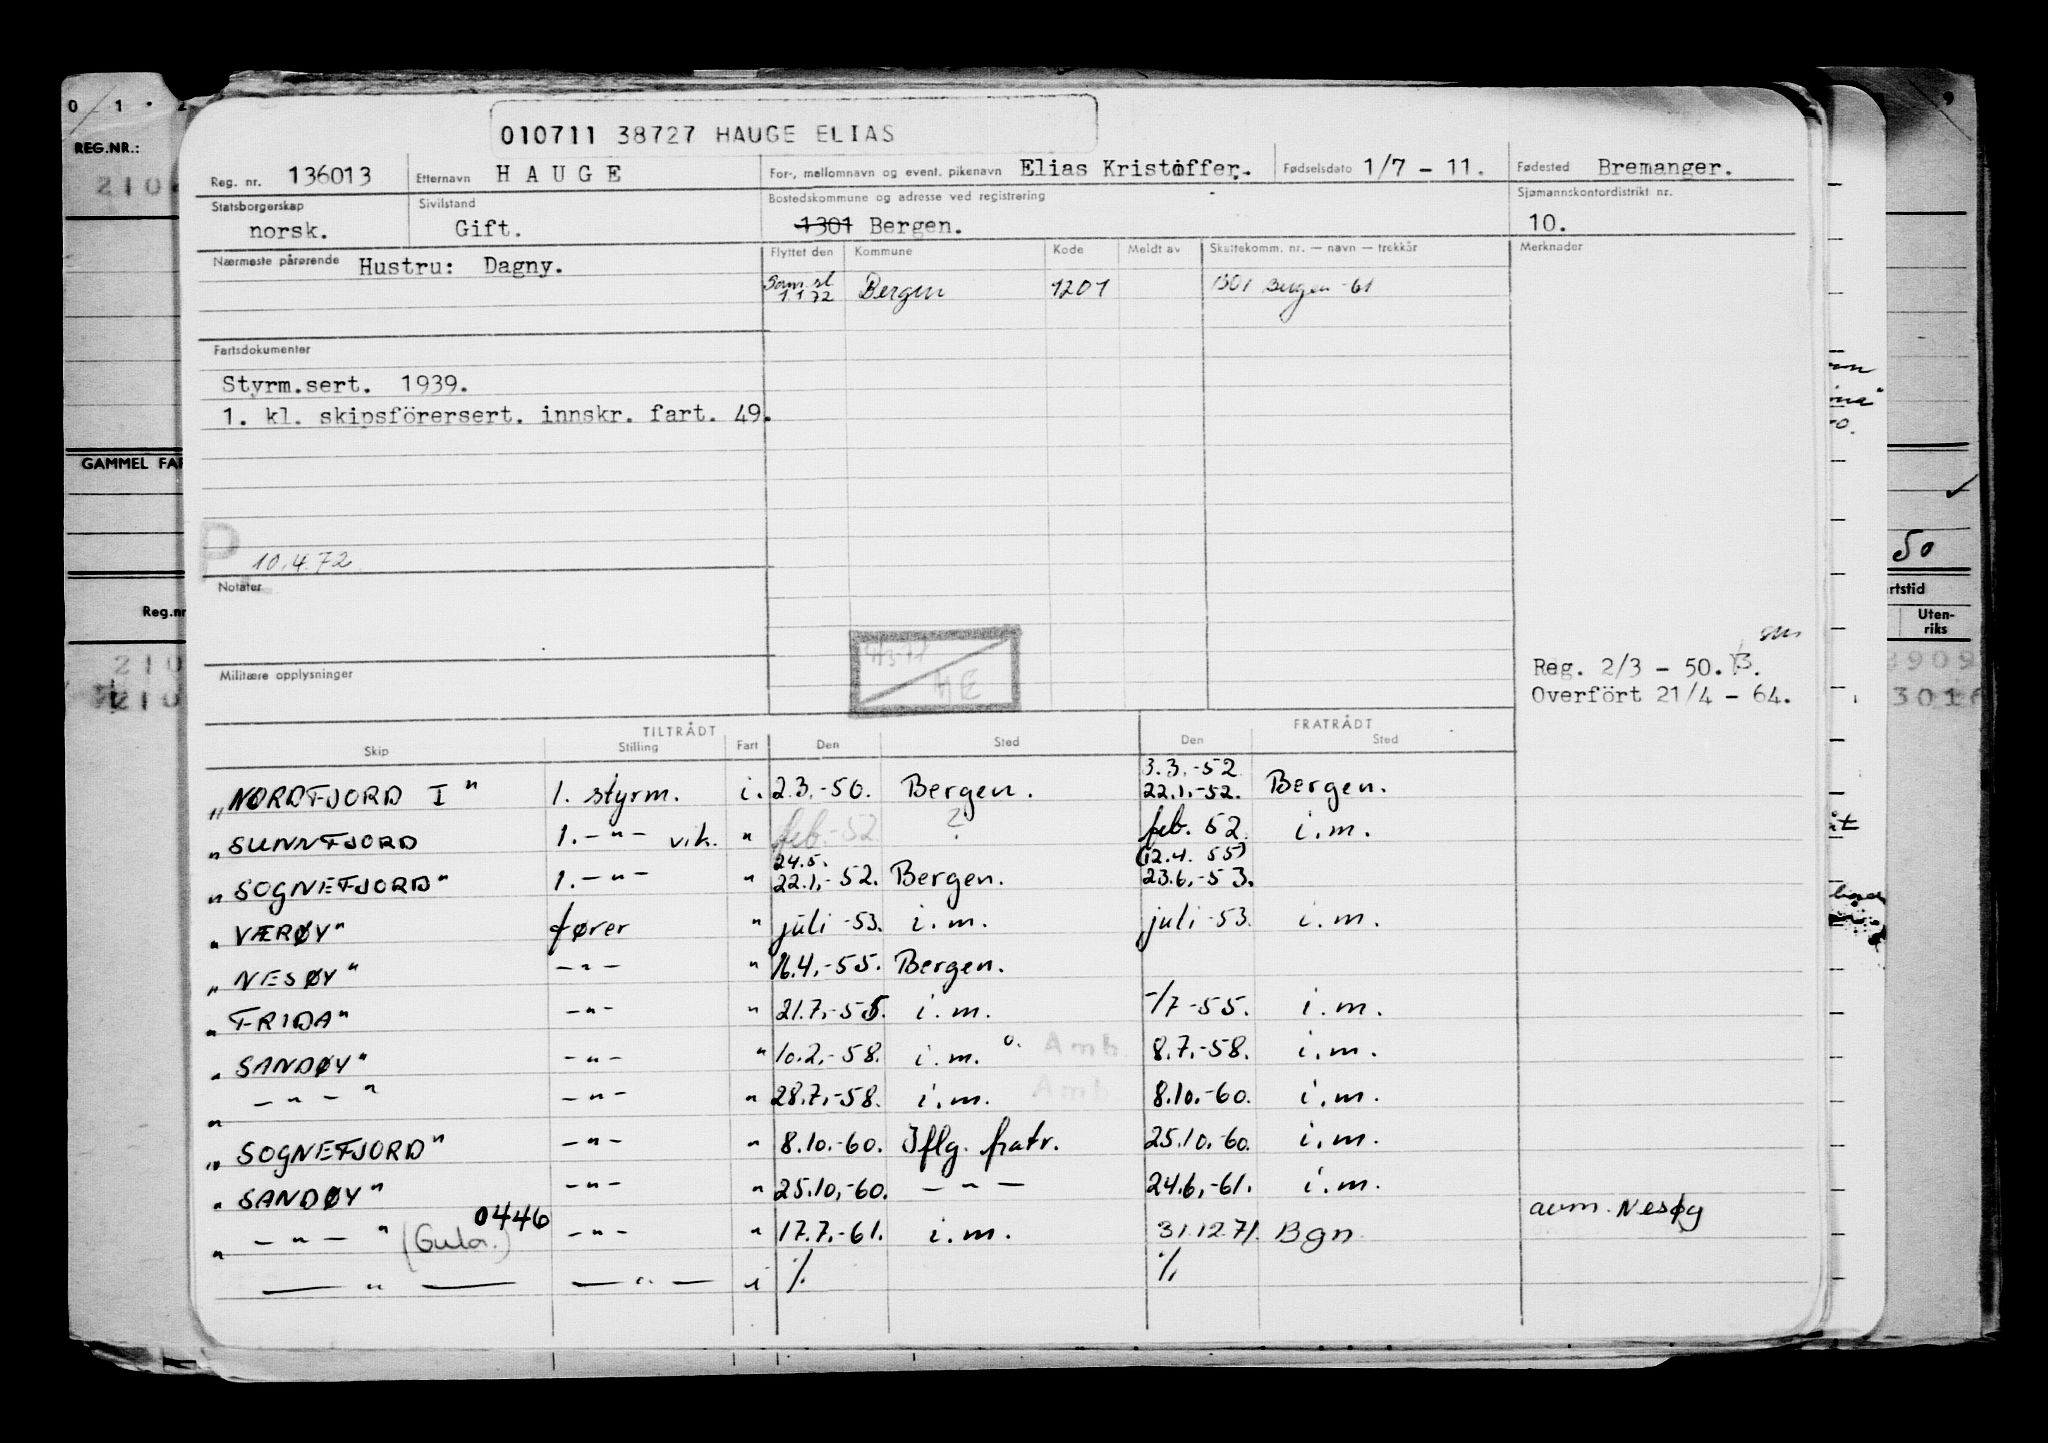 010711 38727 HAUGE ELIAS
Reg. nr. 136013 Etternavn HAUGE For-, mellomnavn og event. pikenavn Elias Kristoffer. Fødselsdato 1/7 - 11. Fødested Bremanger.
Statsborgerskap norsk. Sivilstand Gift. Bostedskommune og adresse ved registrering 1301 Bergen. Sjømannskontordistrikt nr. 10.
Nærmeste pårørende Hustru: Dagny. Flyttet den Kommune Kode Meldt av Skattekomm. nr. — navn — trekkår Merknader
1 1 72 Bergen 1201 1301 Bergen -61
Fartsdokumenter
Styrm.sert. 1939.
1. kl. skipsförersert. innskr. fart. 49.
10.4.72
Notater
Militære opplysninger
Reg. 2/3 - 50.
Overfört 21/4 - 64.
TILTRÅDT FRATRÅDT
Skip Stilling Fart Den Sted Den Sted
3.3.-52
"NORDFJORD I" 1. styrm. i. 2.3.-50. Bergen. 22.1.-52. Bergen.
"SUNNFJORD 1. -"- vik. " feb.-52 ? feb. 52. i.m.
24.5. (12.4. 55)
"SOGNEFJORD" 1. -"- " 22.1.-52. Bergen. 23.6.-53.
"VÆRØY" fører " juli -53. i.m. juli -53. i.m.
"NESØY" -"- " 16.4.-55. Bergen.
"FRIDA" -"- " 21.7.-55. i.m. -/7 -55. i.m.
"SANDØY" -"- " 10.2.-58. i.m. Amb. 8.7.-58. i.m.
" -"- " -"- " 28.7.-58. i.m. Amb 8.10.-60. i.m.
"SOGNEFJORD" -"- " 8.10.-60. Iflg. fratr. 25.10.-60. i.m.
"SANDØY" -"- " 25.10.-60. -"- 24.6.-61. i.m.
0446 avm. Nesøy
" -"- " (Gula.) -"- " 17.7.-61. i.m. 31.12.71. Bgn
-"- -"- i % %
REG.NR.:
GAMMEL FAR
Reg.nr
50
rtstid
Uten-
riks